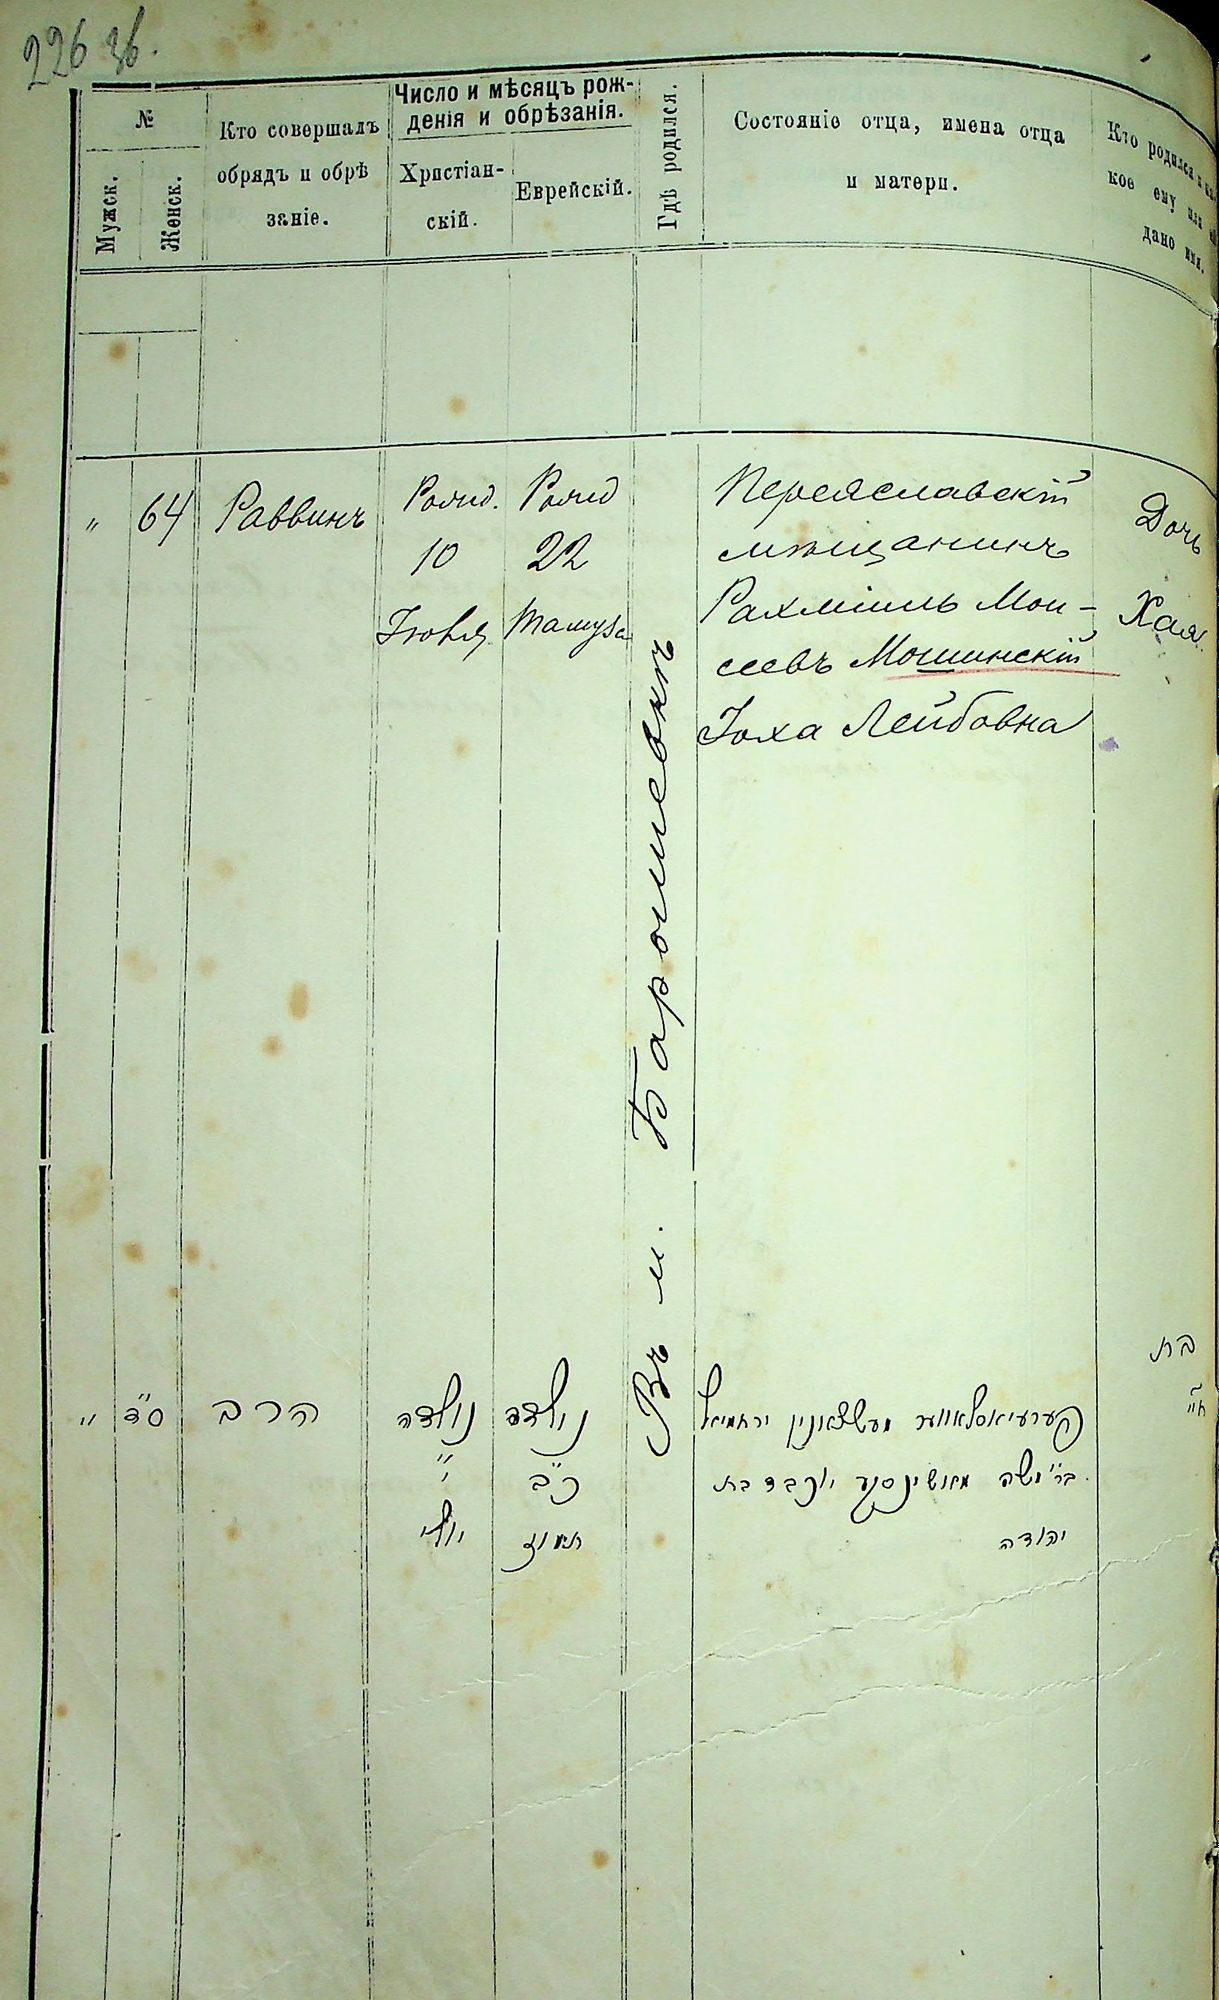 226 зв.
№
Мужск.
Женск.
Кто совершалъ
обрядъ и обрѣ
заніе.
Число и мѣсяцъ рож-
денія и обрѣзанія.
Христіан-
скій.
Еврейскій.
Гдѣ родился.
Состояніе отца, имена отца
и матери.
Кто родился и ка-
кое ему или ей
дано имя.
"
64
Раввинъ
Рожд.
10
Іюля
Рожд
22
Тамуза
Въ м. Барышевкѣ
Переяславскій
мѣщанинъ
Рахміиль Мои-
сеевъ Мошинскій
Іоха Лейбовна
Дочь
Хая
"
ס"ד
הרב
נולדה
י"
יולי
נולדה
כ"ב
תמוז
פערעיאסלאווער מעשצאנין ירחמיאל
בר' משה מאשינסקי יוכבד בת
יהודה
בת
חי'